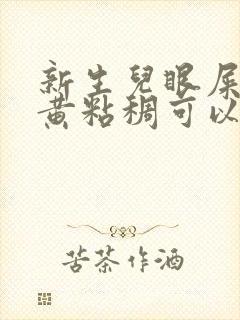 新生兒眼屎
黃黏稠可以
苦茶作酒